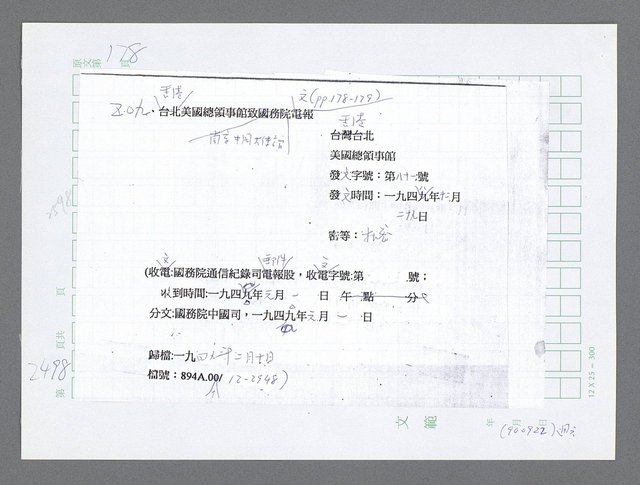 原文第178頁
香港 文(pp.178-179)
五〇九、台北美國總領事館致國務院電報
香港
南京中國大使館
台灣台北
美國總領事館
發文字號：第八十一號
發文時間：一九四九年十二月
二十九日
密等：
文 郵件 文
(收電:國務院通信紀錄司電報股，收電字號:第 號；
收到時間:一九四九年元月一日 午 點 分
分文:國務院中國司，一九四九年元月一日
歸檔:一九四九年二月十日
檔號：894A.00/12-2948)
2498
第 頁共 頁
12 X 25 = 300
文範
年 月 日
(900922)